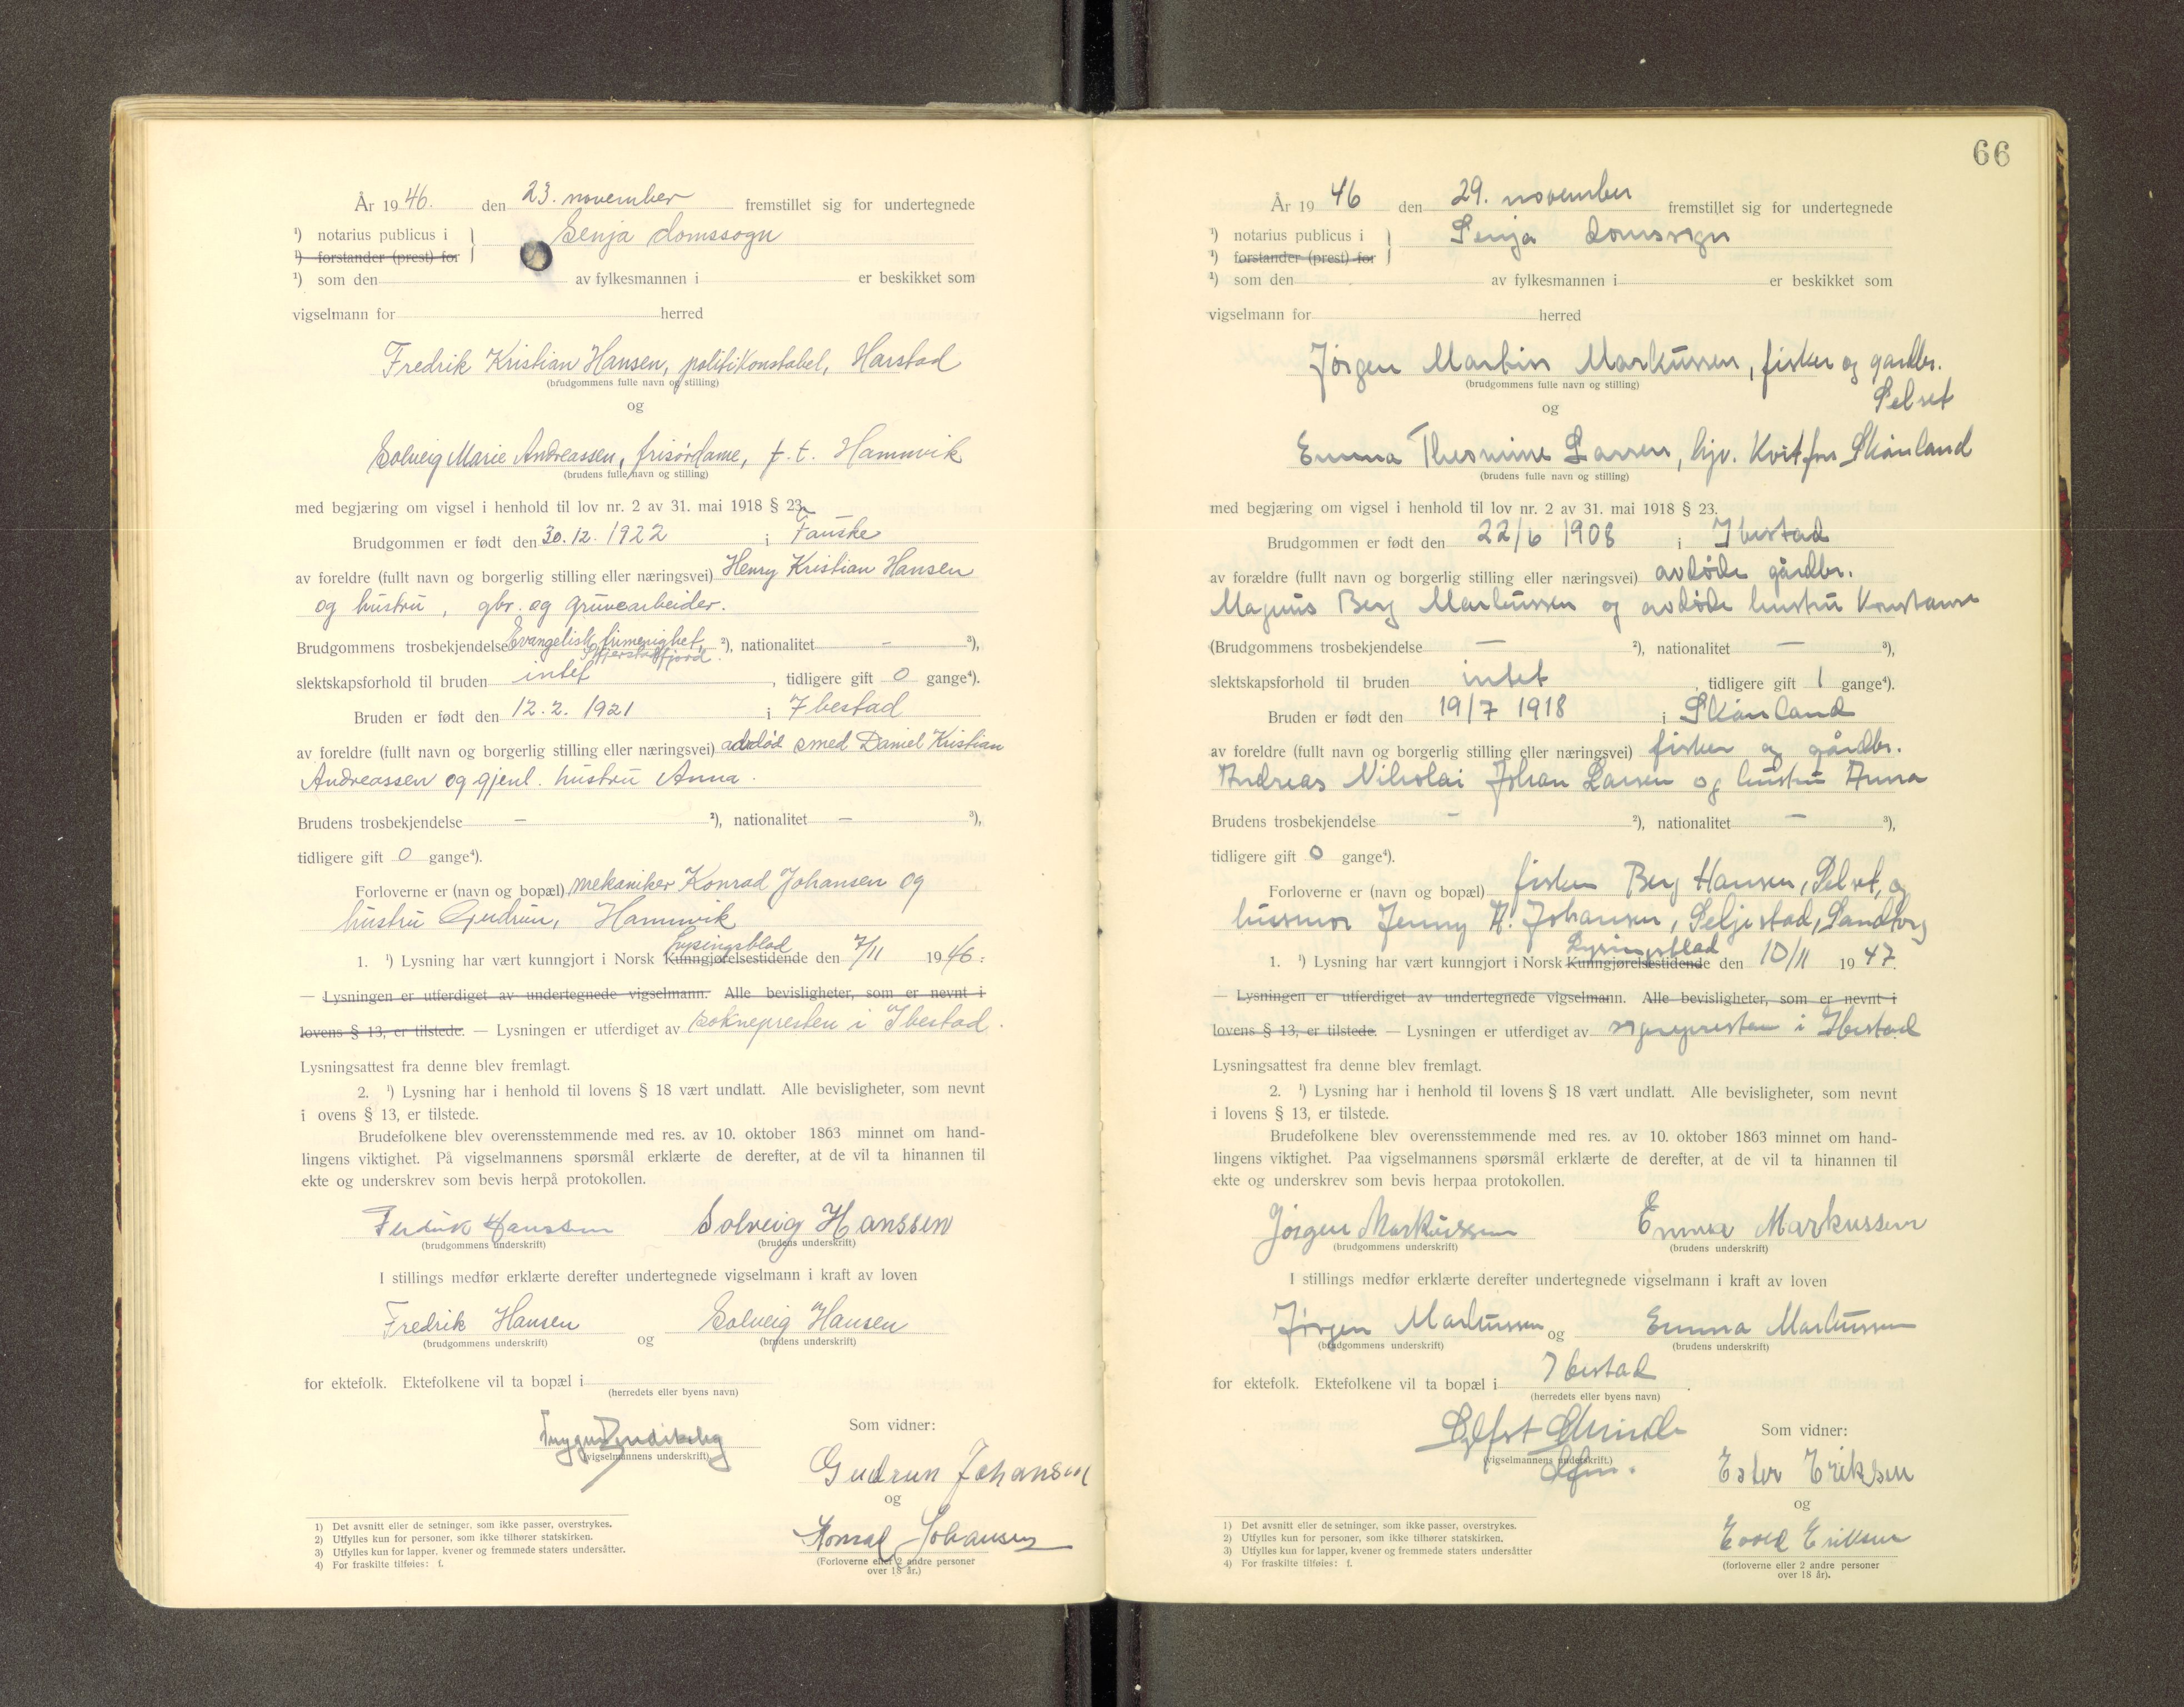 År 19 46. den 23. november fremstillet sig for undertegnede
¹) notarius publicus i Senja domssogn
¹) forstander (prest) for
¹) som den av fylkesmannen i er beskikket som
vigselmann for herred
Fredrik Kristian Hansen, politikonstabel, Harstad
(brudgommens fulle navn og stilling)
og
Solveig Marie Andreassen, frisørdame, f.t. Hamnvik
(brudens fulle navn og stilling)
med begjæring om vigsel i henhold til lov nr. 2 av 31. mai 1918 § 23.
Brudgommen er født den 30.12. 1922 i Fauske
av foreldre (fullt navn og borgerlig stilling eller næringsvei) Henry Kristian Hansen
og hustru, gbr. og gruvearbeider.
Brudgommens trosbekjendelse Evangelisk frimenighet, ²), nationalitet – ³),
Skjerstadfjord.
slektskapsforhold til bruden intet, tidligere gift 0 gange⁴).
Bruden er født den 12.2. 1921 i Ibestad
av foreldre (fullt navn og borgerlig stilling eller næringsvei) avdød smed Daniel Kristian
Andreassen og gjenl. hustru Anna.
Brudens trosbekjendelse – ²), nationalitet – ³),
tidligere gift 0 gange⁴).
Forloverne er (navn og bopæl) mekaniker Konrad Johansen og
hustru Gudrun, Hamnvik
Lysingsblad
1. ¹) Lysning har vært kunngjort i Norsk Kunngjørelsestidende den 7/11 19 46.
— Lysningen er utferdiget av undertegnede vigselmann. Alle bevisligheter, som er nevnt i
lovens § 13, er tilstede. — Lysningen er utferdiget av soknepresten i Ibestad.
Lysningsattest fra denne blev fremlagt.
2. ¹) Lysning har i henhold til lovens § 18 vært undlatt. Alle bevisligheter, som nevnt
i ovens § 13, er tilstede.
Brudefolkene blev overensstemmende med res. av 10. oktober 1863 minnet om hand-
lingens viktighet. På vigselmannens spørsmål erklærte de derefter, at de vil ta hinannen til
ekte og underskrev som bevis herpå protokollen.
Fredrik Hanssen Solveig Hanssen
(brudgommens underskrift) (brudens underskrift)
I stillings medfør erklærte derefter undertegnede vigselmann i kraft av loven
Fredrik Hansen og Solveig Hansen
(brudgommens underskrift) (brudens underskrift)
for ektefolk. Ektefolkene vil ta bopæl i
(herredets eller byens navn)
Som vidner:
(vigselmannens underskrift)
Gudrun Johansen
og
Konrad Johansen
(Forloverne eller 2 andre personer
over 18 år.)
1) Det avsnitt eller de setninger, som ikke passer, overstrykes.
2) Utfylles kun for personer, som ikke tilhører statskirken.
3) Utfylles kun for lapper, kvener og fremmede staters undersåtter.
4) For fraskilte tilføies: f.
66
År 19 46 den 29. november fremstillet sig for undertegnede
¹) notarius publicus i Senja domssogn
¹) forstander (prest) for
¹) som den av fylkesmannen i er beskikket som
vigselmann for herred
Jørgen Martin Markussen, fisker og gardbr.
(brudgommens fulle navn og stilling)
Selset
og
Emma Thesmine Larsen, hjv. Kvitfors Skånland
(brudens fulle navn og stilling)
med begjæring om vigsel i henhold til lov nr. 2 av 31. mai 1918 § 23.
Brudgommen er født den 22/6 1908 i Ibestad
av forældre (fullt navn og borgerlig stilling eller næringsvei) avdøde gårdbr.
Magnus Berg Markussen og avdøde hustru Konstanse
(Brudgommens trosbekjendelse – ²), nationalitet – ³),
slektskapsforhold til bruden intet, tidligere gift 1 gange⁴).
Bruden er født den 19/7 1918 i Skånland
av foreldre (fullt navn og borgerlig stilling eller næringsvei) fisker og gårdbr.
Andreas Nikolai Johan Larsen og hustru Anna
Brudens trosbekjendelse – ²), nationalitet – ³),
tidligere gift 0 gange⁴).
Forloverne er (navn og bopæl) fisker Berg Hansen, Selset, og
husmor Jenny H. Johansen, Seljestad, Sandtorg
Lysingsblad
1. ¹) Lysning har vært kunngjort i Norsk Kunngjørelsestidende den 10/11 19 47.
— Lysningen er utferdiget av undertegnede vigselmann. Alle bevisligheter, som er nevnt i
lovens § 13, er tilstede. — Lysningen er utferdiget av sognepresten i Ibestad
Lysningsattest fra denne blev fremlagt.
2. ¹) Lysning har i henhold til lovens § 18 vært undlatt. Alle bevisligheter, som nevnt
i lovens § 13, er tilstede.
Brudefolkene blev overensstemmende med res. av 10. oktober 1863 minnet om hand-
lingens viktighet. Paa vigselmannens spørsmål erklærte de derefter, at de vil ta hinannen til
ekte og underskrev som bevis herpaa protokollen.
Jørgen Markussen Emma Markussen
(brudgommens underskrift) (brudens underskrift)
I stillings medfør erklærte derefter undertegnede vigselmann i kraft av loven
Jørgen Markussen og Emma Markussen
(brudgommens underskrift) (brudens underskrift)
for ektefolk. Ektefolkene vil ta bopæl i Ibestad
(herredets eller byens navn)
Som vidner:
(vigselmannens underskrift.)
Ester Eriksen
og
Eriksen
(forloverne eller 2 andre personer
over 18 år).
1) Det avsnitt eller de setninger, som ikke passer, overstrykes.
2) Utfylles kun for personer, som ikke tilhører statskirken.
3) Utfylles kun for lapper, kvener og fremmede staters undersåtter
4) For fraskilte tilføies: f.